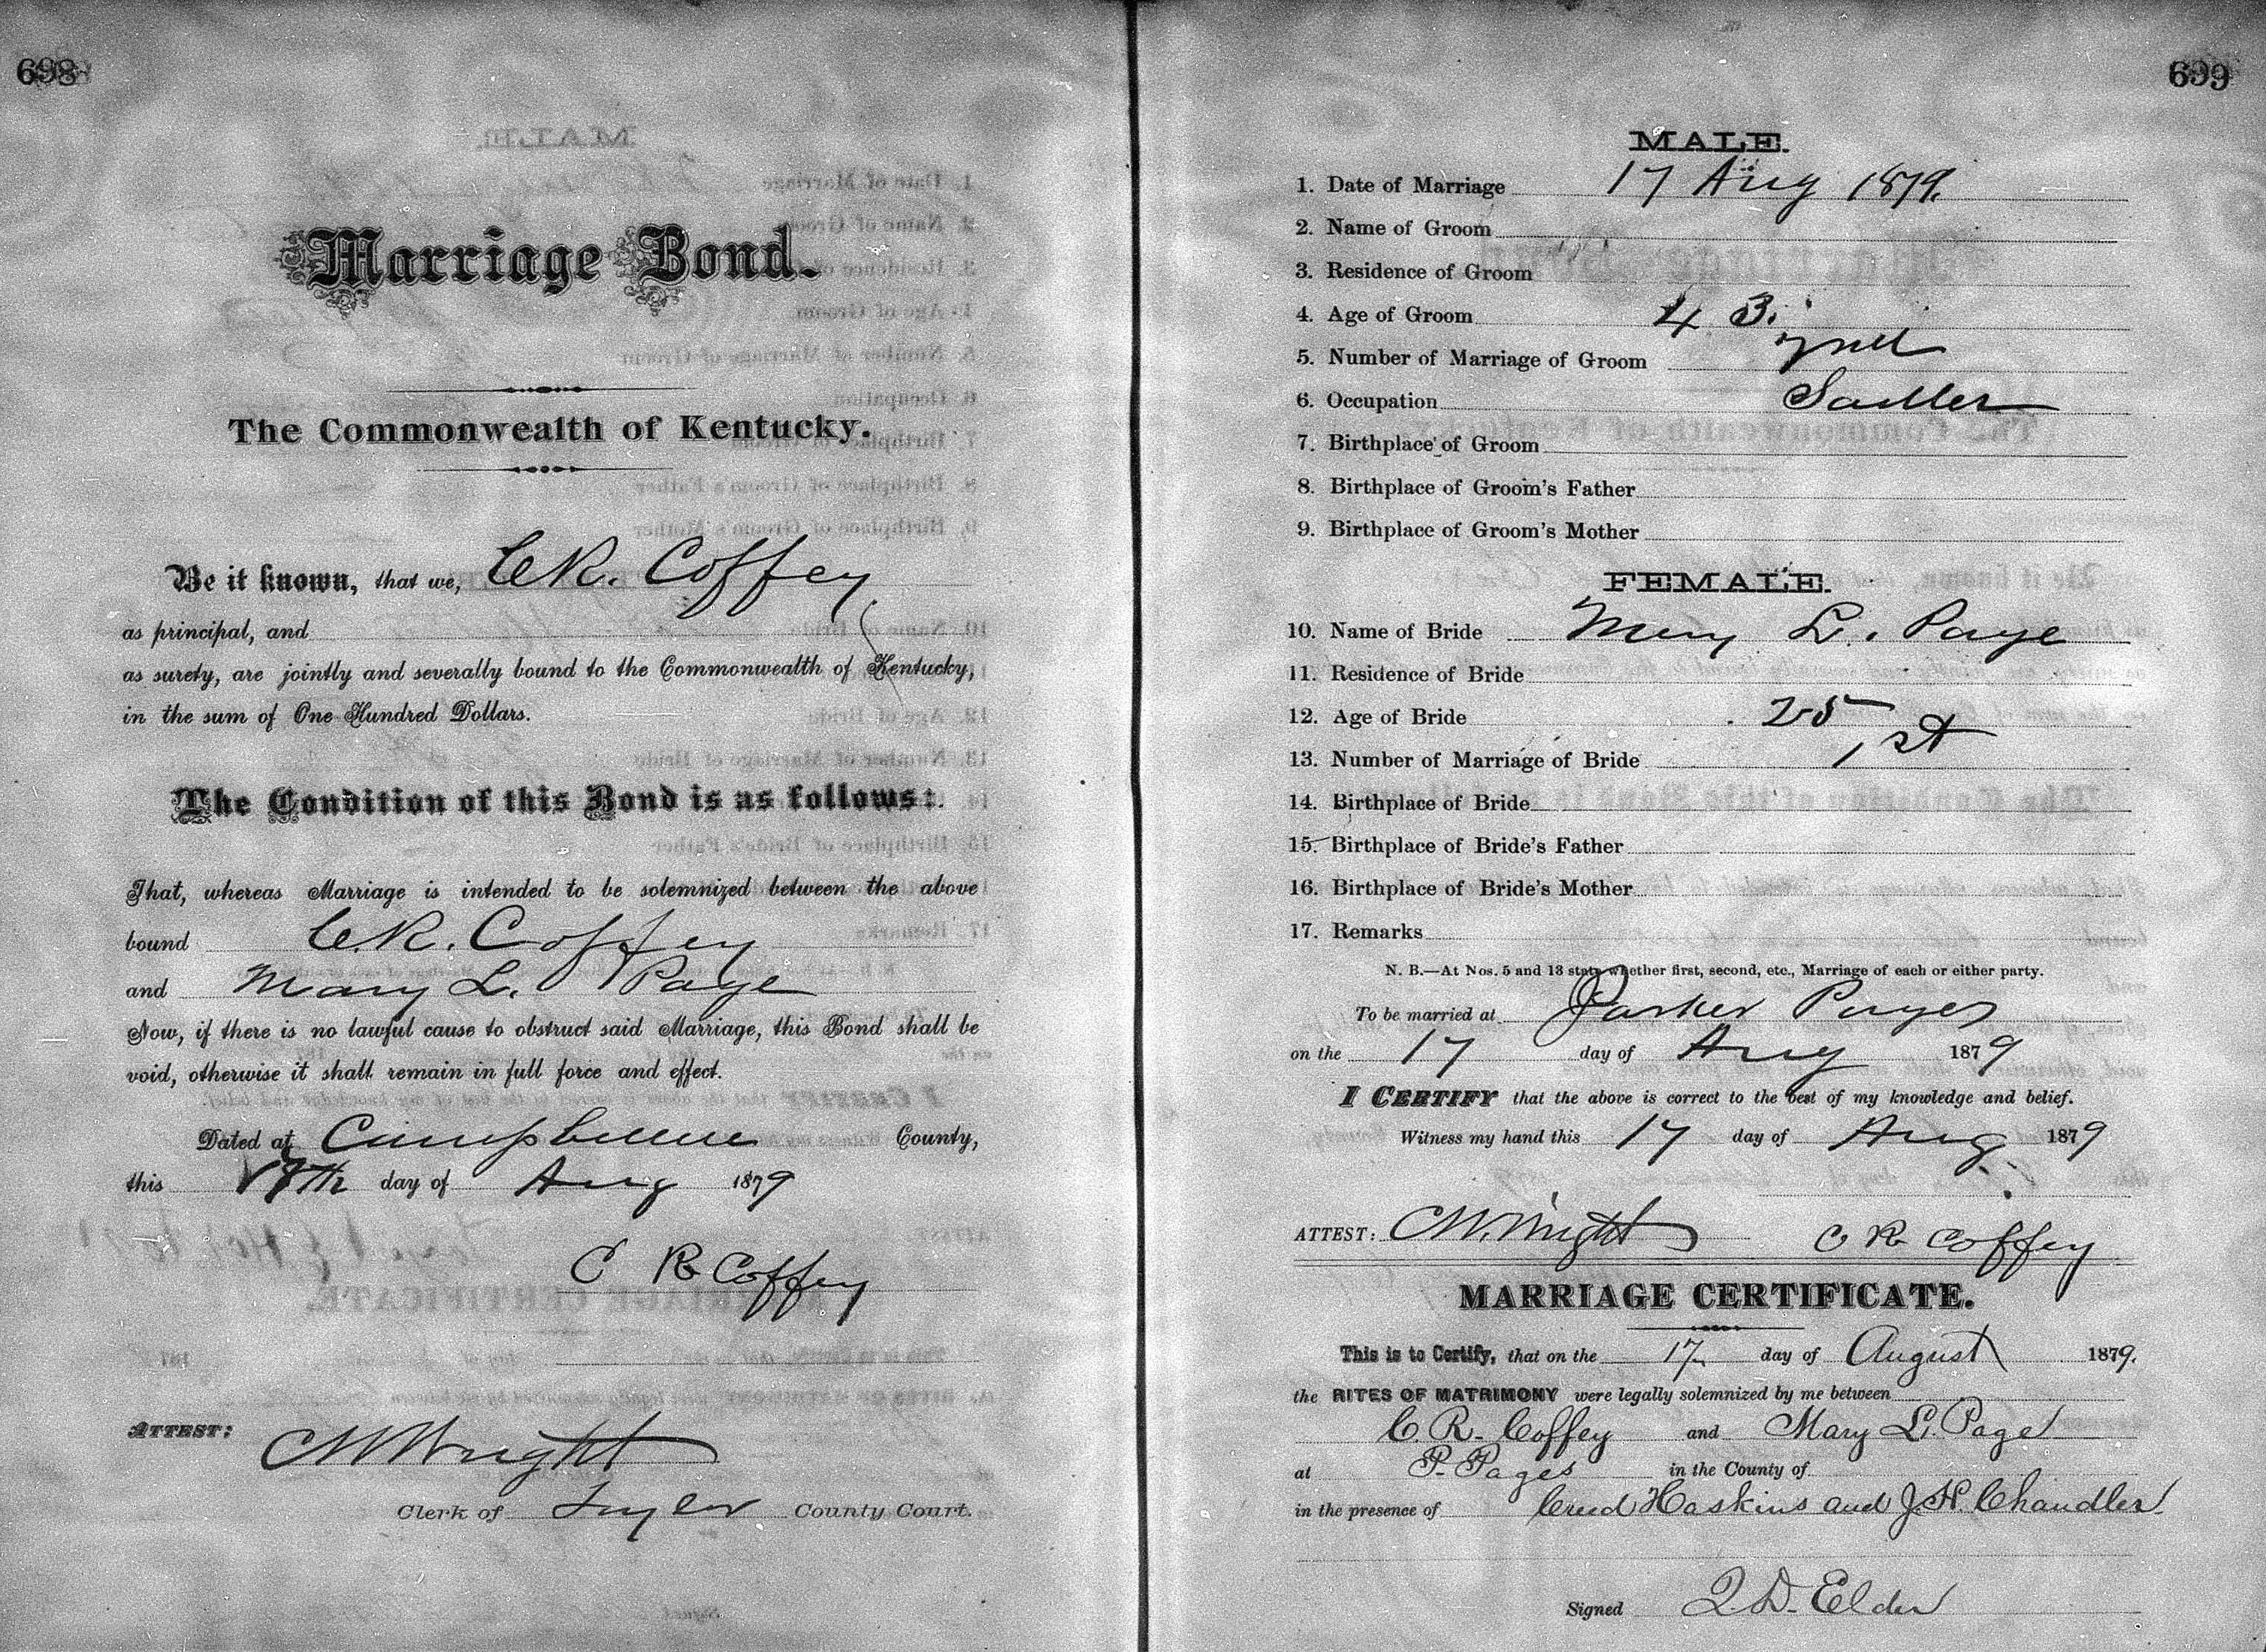 698
Marriage Bond.
The Commonwealth of Kentucky.
Be it known, that we, C.R. Coffey
as principal, and
as surety, are jointly and severally bound to the Commonwealth of Kentucky,
in the sum of One Hundred Dollars.
The Condition of this Bond is as follows:
That, whereas Marriage is intended to be solemnized between the above
bound C.R. Coffey
and Mary L. Page
Now, if there is no lawful cause to obstruct said Marriage, this Bond shall be
void, otherwise it shall remain in full force and effect.
Dated at Campbellville County,
this 17th day of Aug 1879
C R Coffey
ATTEST: C M Wright
Clerk of Taylor County Court.
699
MALE.
1. Date of Marriage 17 Aug 1879.
2. Name of Groom
3. Residence of Groom
4. Age of Groom 43.
5. Number of Marriage of Groom
6. Occupation Sadler
7. Birthplace of Groom
8. Birthplace of Groom's Father
9. Birthplace of Groom's Mother
FEMALE.
10. Name of Bride Mary L. Page
11. Residence of Bride
12. Age of Bride 25
13. Number of Marriage of Bride 1st
14. Birthplace of Bride
15. Birthplace of Bride's Father
16. Birthplace of Bride's Mother
17. Remarks
N. B.—At Nos. 5 and 13 state whether first, second, etc., Marriage of each or either party.
To be married at Parker Pages
on the 17 day of Aug 1879
I CERTIFY that the above is correct to the best of my knowledge and belief.
Witness my hand this 17 day of Aug 1879
ATTEST: C M Wright C R Coffey
MARRIAGE CERTIFICATE.
This is to Certify, that on the 17 day of August 1879.
the RITES OF MATRIMONY were legally solemnized by me between
C. R. Coffey and Mary L. Page
at P. Pages in the County of
in the presence of Creed Haskins and J. H. Chandler
Signed Q. D. Elder